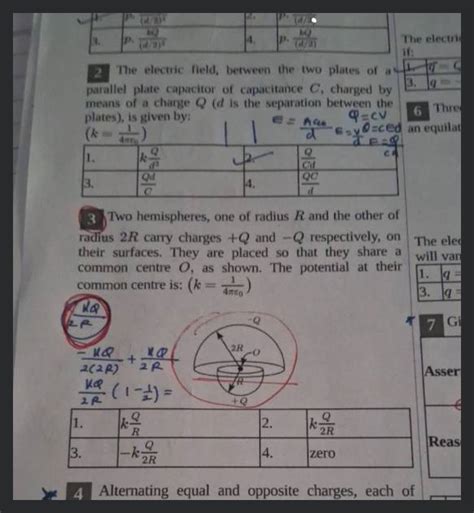 1. P. (d/2)² 2. P. (d/2)
3. P. kQ/(d/2)² 4. P. kQ/(d/2)
The electri
if:
1. q = Q
3. q = -
2 The electric field, between the two plates of a
parallel plate capacitor of capacitance C, charged by
means of a charge Q (d is the separation between the
plates), is given by:
(k = 1/4πε₀)
Q=CV
E=Q/Cd
6 Three
an equilat
1. k Q/d² 2. Q/Cd
3. Qd/C 4. QC/d
3 Two hemispheres, one of radius R and the other of
radius 2R carry charges +Q and −Q respectively, on
their surfaces. They are placed so that they share a
common centre O, as shown. The potential at their
common centre is: (k = 1/4πε₀)
The elec
will van
1. q =
3. q =
7 Gi
KQ/2R
-KQ/2(2R) + KQ/2R
KQ/2R (1-1/2) =
-Q
2R
O
R
+Q
Asser
Reas
1. k Q/R 2. k Q/2R
3. −k Q/2R 4. zero
4 Alternating equal and opposite charges, each of